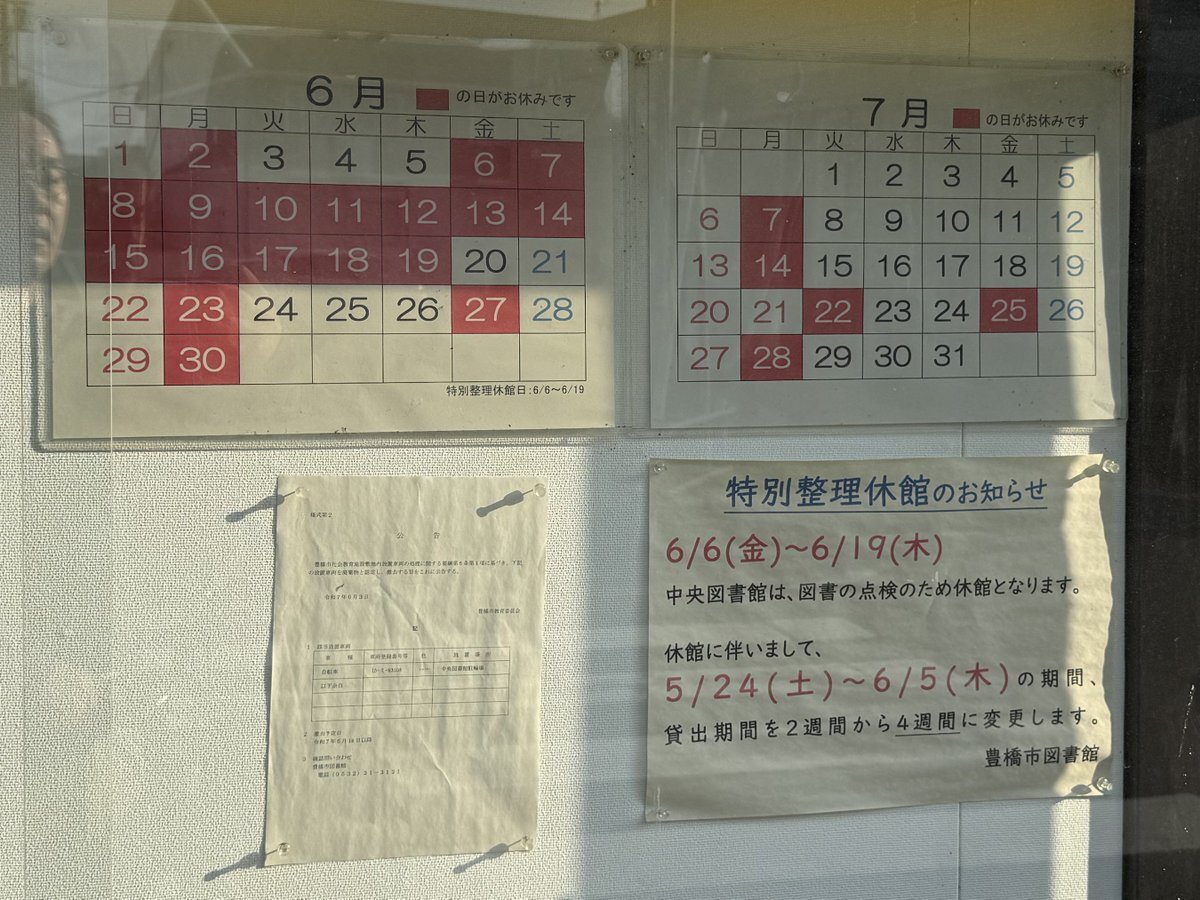 6月 の日がお休みです
日 月 火 水 木 金 土
1 2 3 4 5 6 7
8 9 10 11 12 13 14
15 16 17 18 19 20 21
22 23 24 25 26 27 28
29 30
特別整理休館日:6/6〜6/19
7月 の日がお休みです
日 月 火 水 木 金 土
1 2 3 4 5
6 7 8 9 10 11 12
13 14 15 16 17 18 19
20 21 22 23 24 25 26
27 28 29 30 31
様式第2
公 告
令和7年6月3日
豊橋市教育委員会
記
自転車 中央図書館駐輪場
豊橋市図書館
電話(0532)31-3131
特別整理休館のお知らせ
6/6(金)〜6/19(木)
中央図書館は、図書の点検のため休館となります。
休館に伴いまして、
5/24(土)〜6/5(木)の期間、
貸出期間を2週間から4週間に変更します。
豊橋市図書館